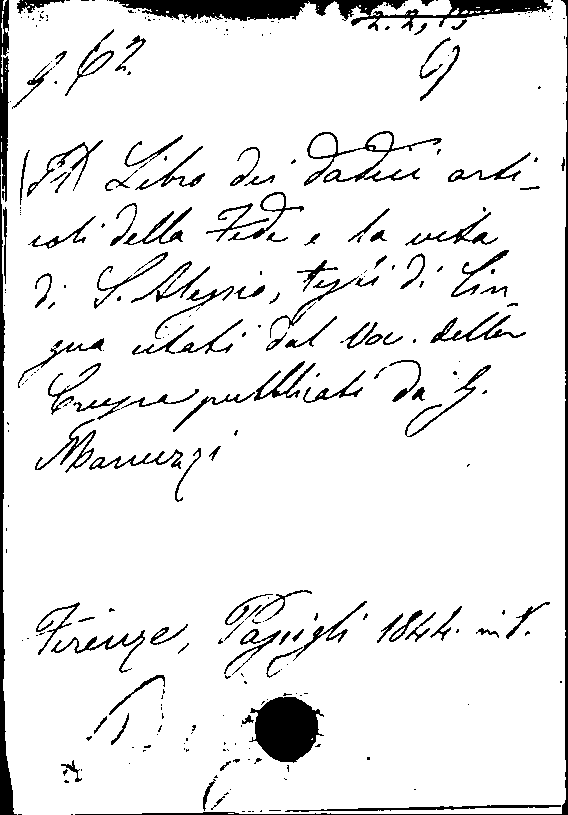 2.2,13
g. 62.
6)
(Il) Libro dei dodici arti-
coli della Fede e la vita
di S. Alessio, testi di lin
gua citati dal Voc. della
Crusca pubblicati da G.
Manuzzi
Firenze, Passigli 1844. in 8.